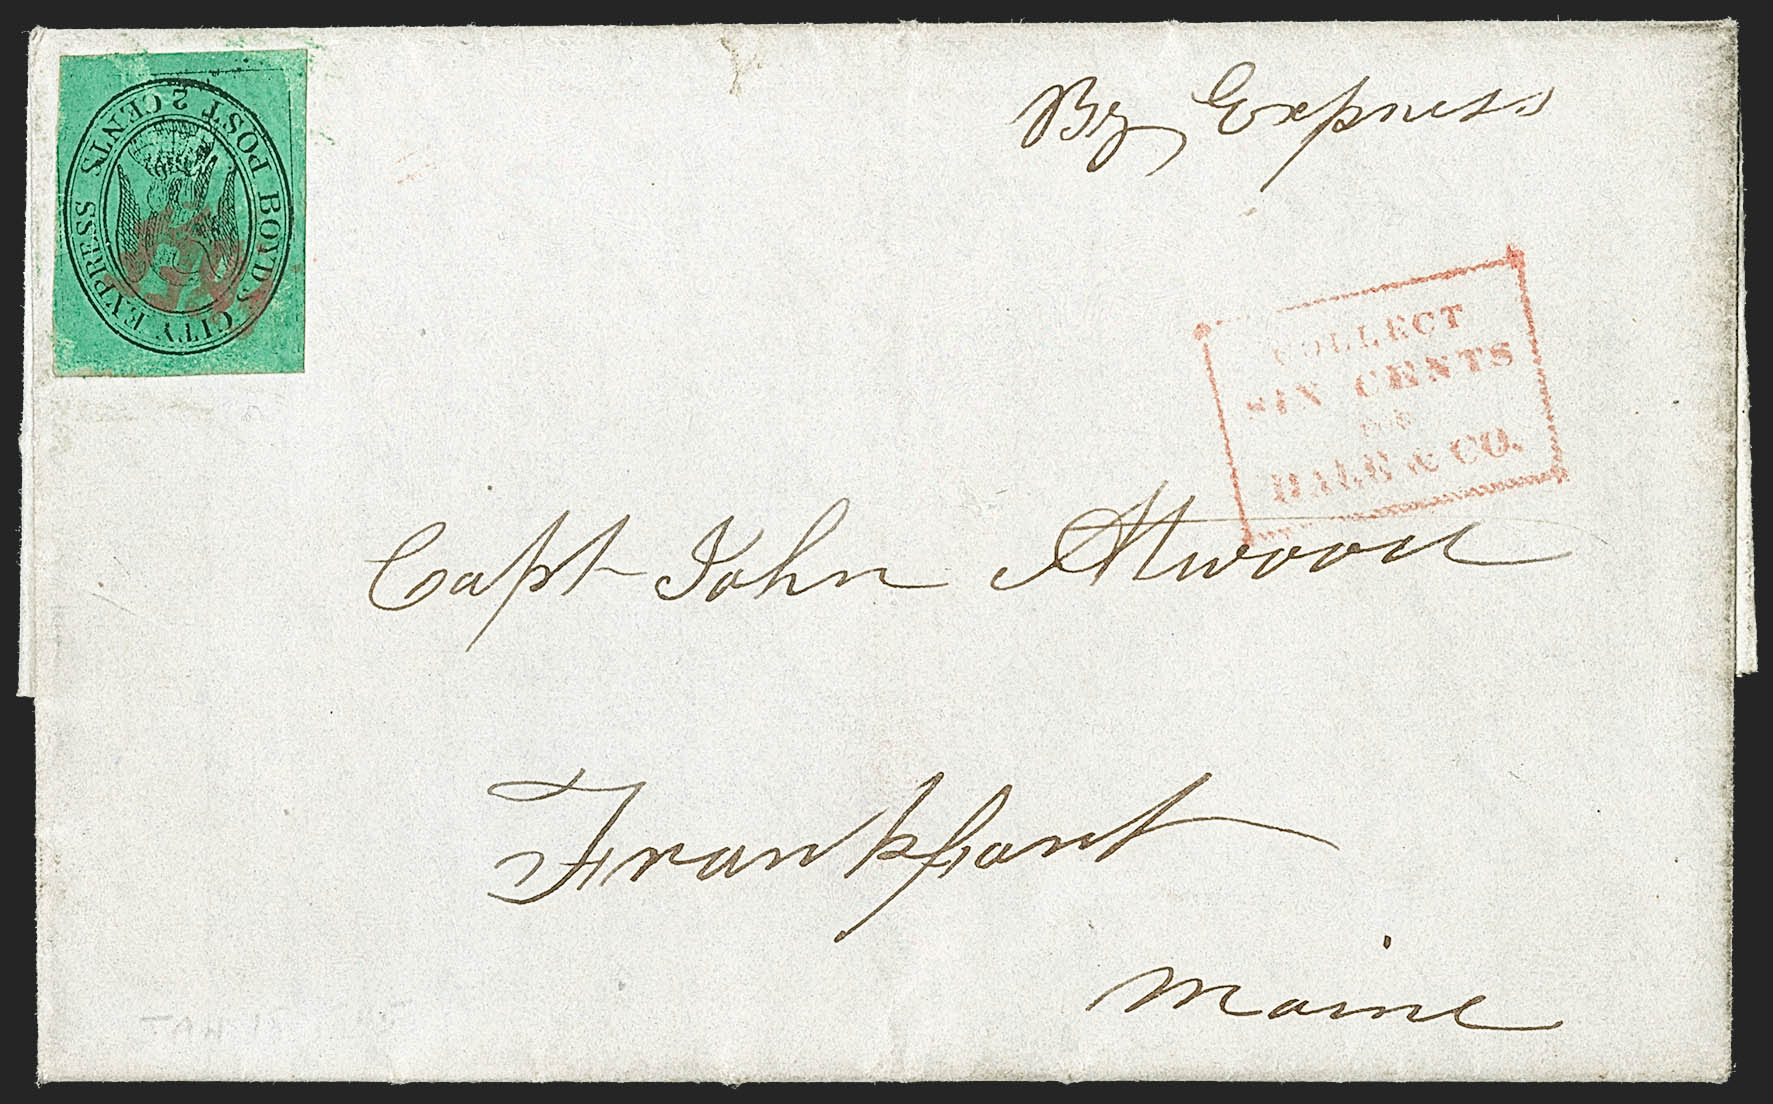 BOYD'S CITY EXPRESS POST 2 CENTS
By Express
COLLECT
SIX CENTS
FOR
HALE & CO.
Capt John Atwood
Frankfort
Maine